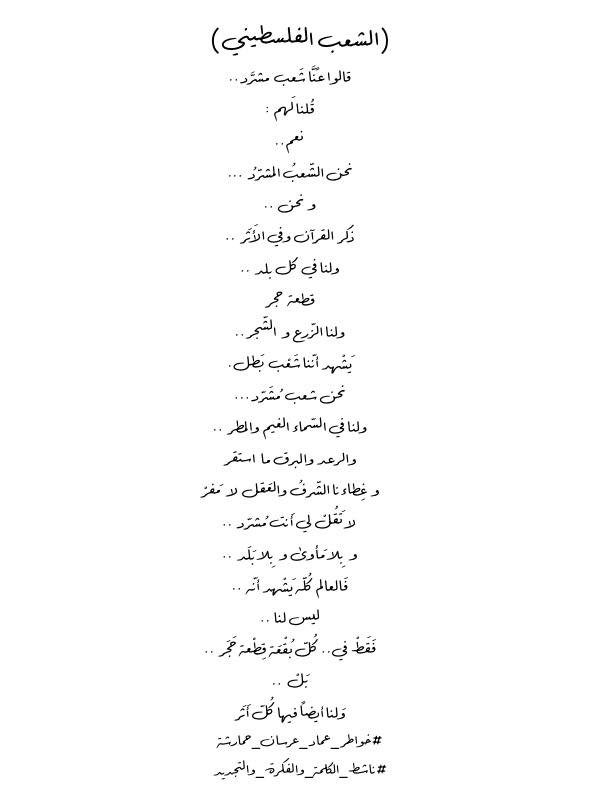 (الشعب الفلسطيني)
قالوا عنَّا شَعب مشرَّد..
قُلنا لَهم :
نعم..
نحن الشّعبُ المشرّدُ ...
و نحن ..
ذكر القرآن وفي الأَثَر ..
ولنا في كل بلد ..
قطعة حجر
ولنا الزّرع و الشّجر..
يَشْهد أنّنا شَعْب بَطل.
نحن شعب مُشَرّد...
ولنا في السّماء الغيم والمطر ..
والرعد والبرق ما استقر
و غِطاءنا الشّرفُ والعَقل لا مَفرّ
لا تَقُلْ لي أَنتَ مُشرّد ..
و بِلا مَأوىٰ و بِلا بَلَد ..
فَالعالم كُلّه يَشْهد أنّه ..
ليس لنا ..
فَقَطْ في.. كُلّ بُقْعَة قِطْعة حَجَر ..
بَلْ ..
وَلنا أيضاً فيها كُلّ أَثَر
#خواطر_عماد_عرسان_حمارشة
#ناشط_الكلمة_والفكرة_والتجديد